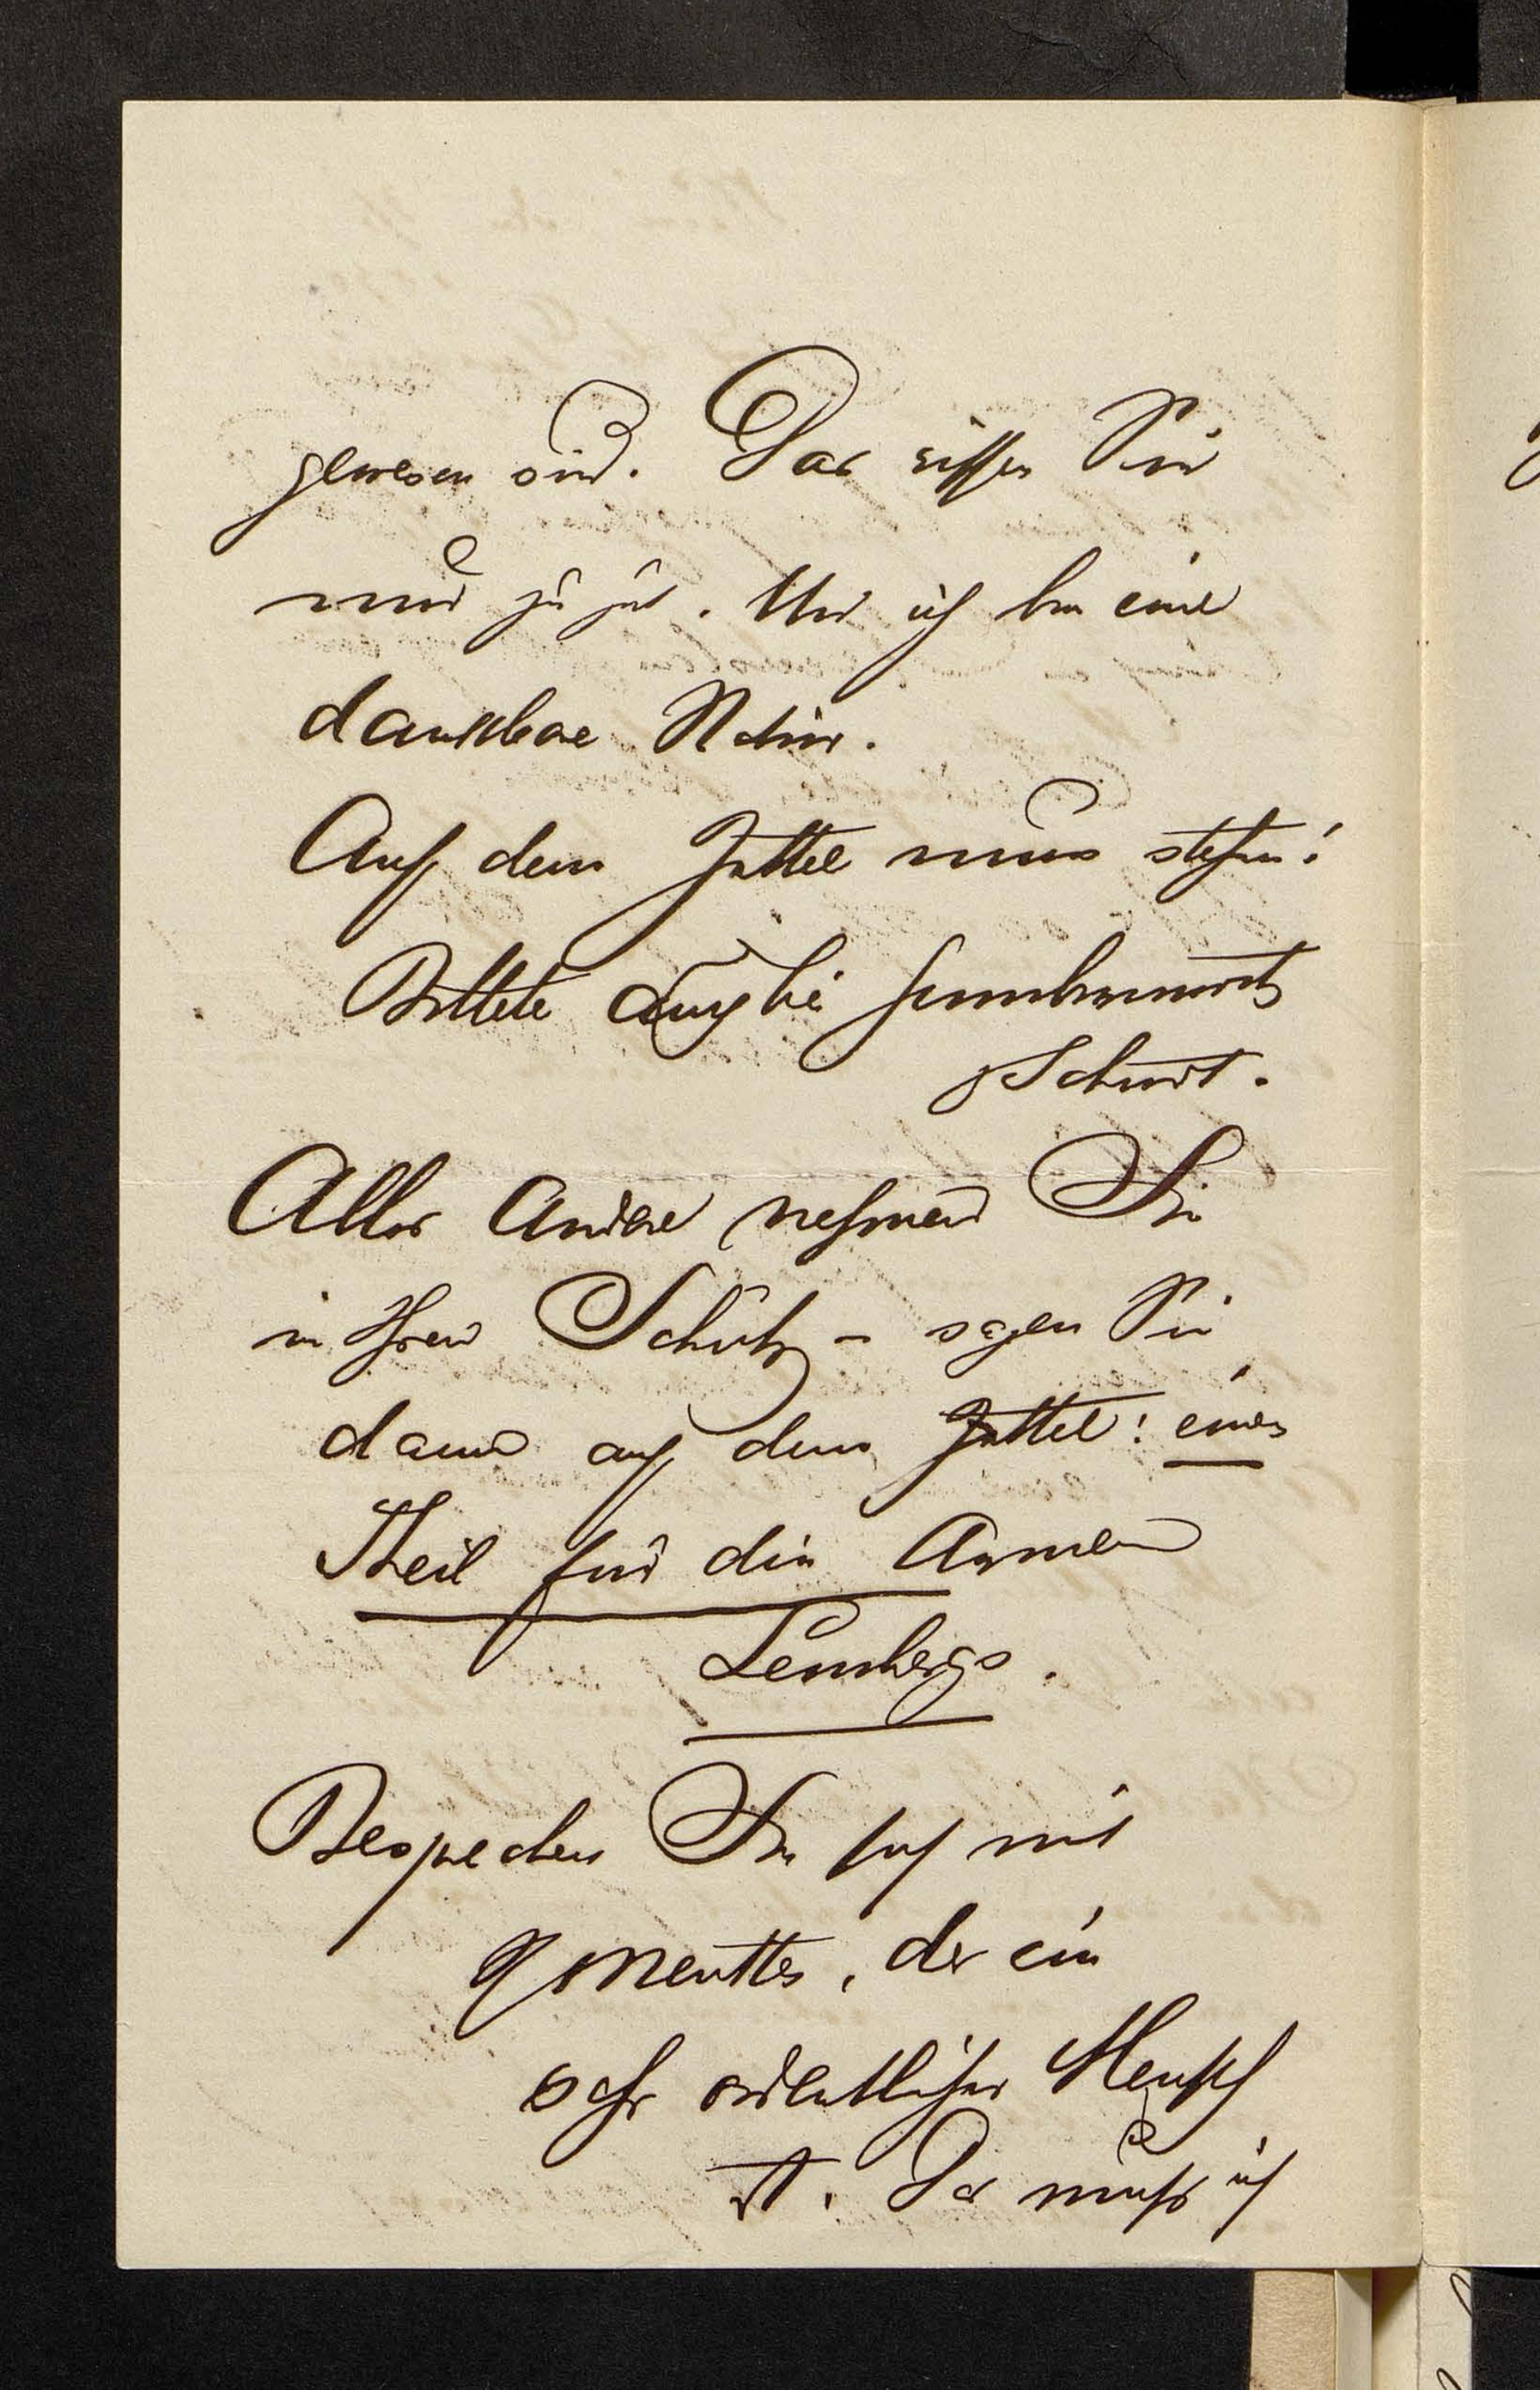 gewesen sind. Das wissen Sie
nur zu gut. Und ich bin eine
dankbare Natur.
Auf dem Zettel muss stehen:
Billete auch bei
Schmidt.
Alles Andere nehmen Sie
in Ihren Schutz – sagen Sie
dann auf dem Zettel: einen
Theil für die Armen
Lembergs.
Besprechen Sie sich mit
der ein
sehr ordentlicher Mensch
ist. Das muß ich